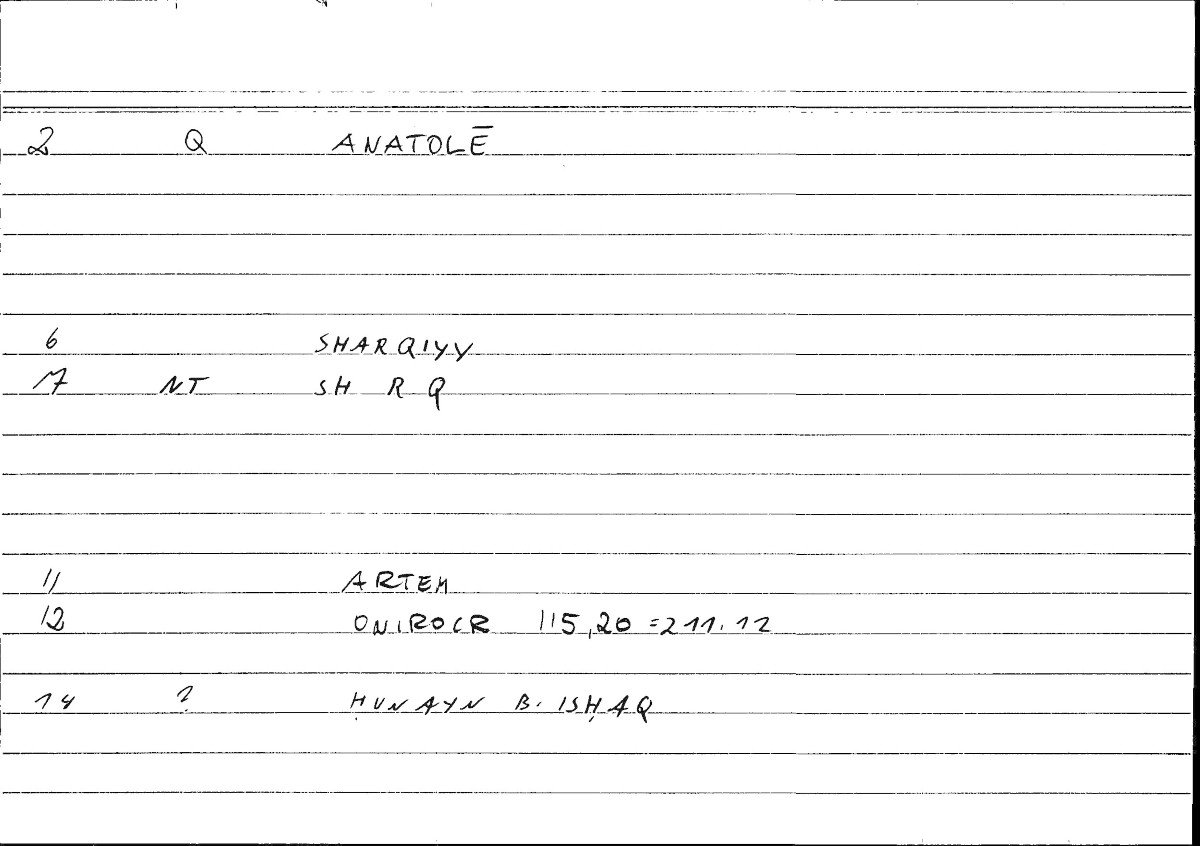 2 Q ANATOLĒ
6 SHARQIYY
17 NT SH R Q
11 ARTEM
12 ONIROCR 115,20 =211.12
14 ? ḤUNAYN B. ISḤAQ